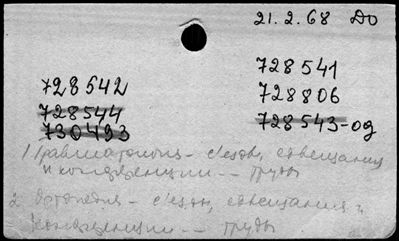 21.2.68 До
728542
728544
730493
728541
728806
728543-од
1 Травматология - съезды, совещания
и конференции -- труды
2 Ортопедия - съезды, совещания и
конференции -- труды